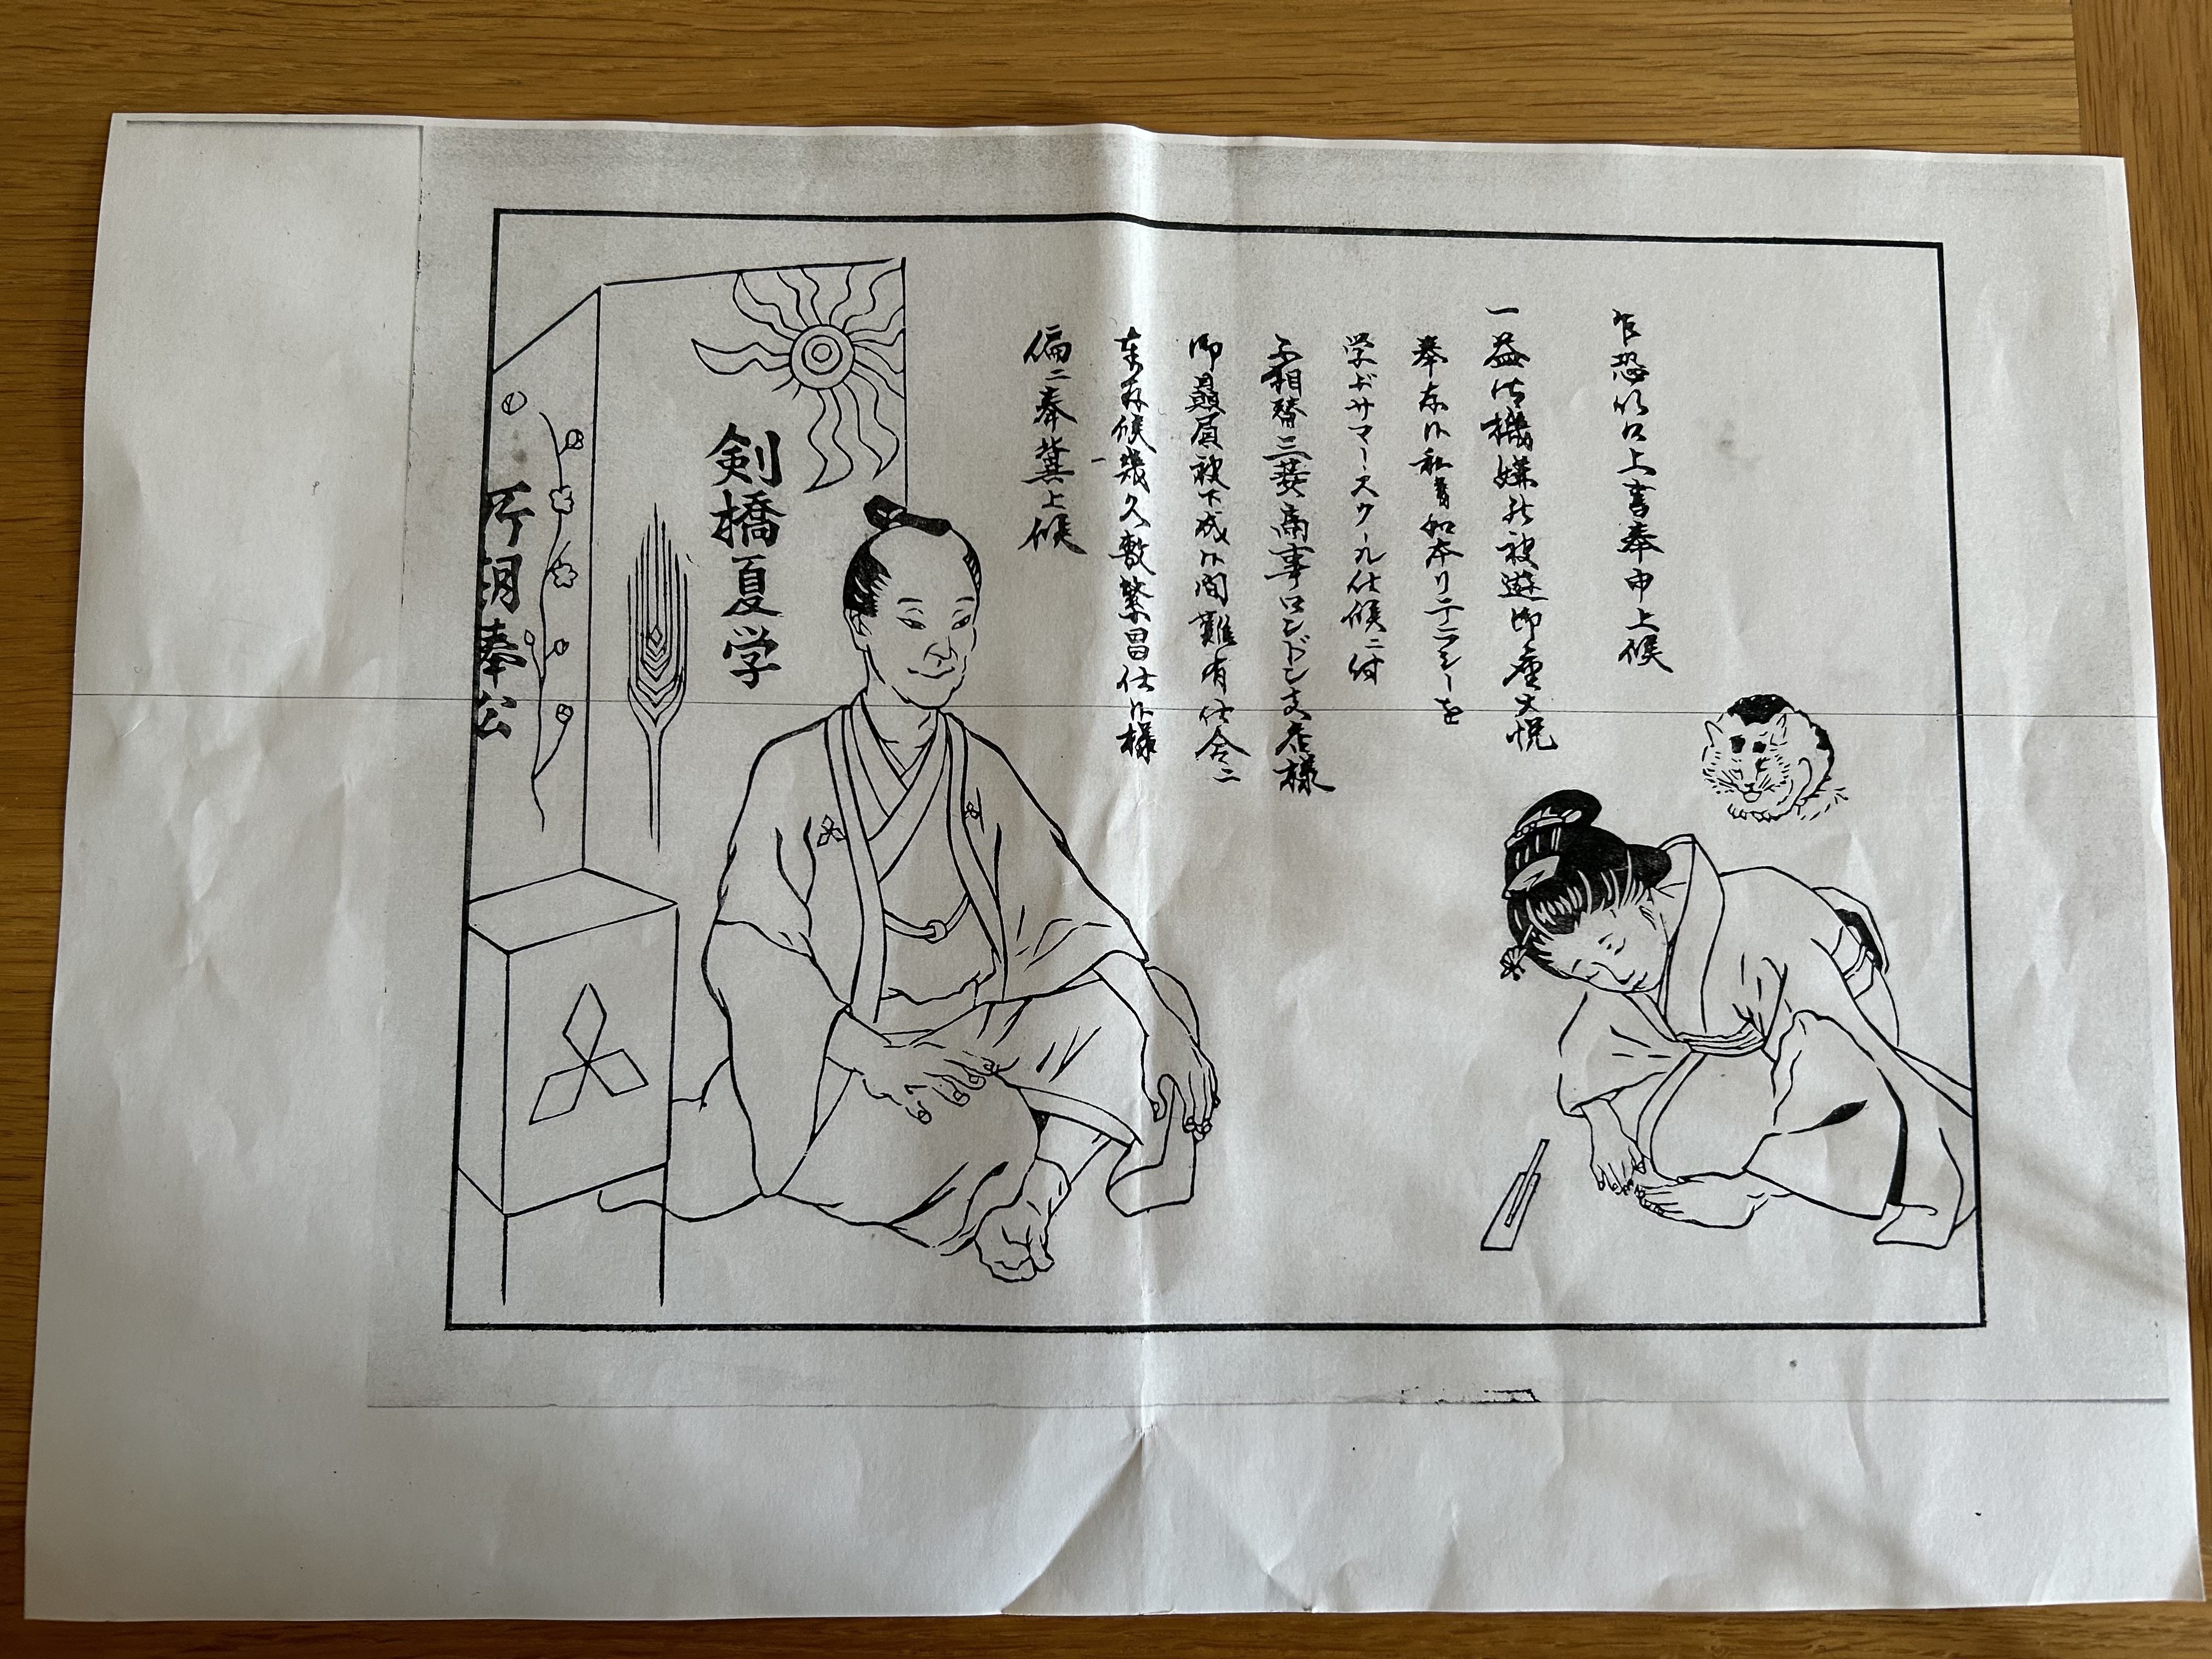 乍恐以口上書奉申上候
一益御機嫌能被遊御座大悦
奉存候私育如本リテラシーを
学ぶサマースクール仕候ニ付
不相替三菱商事ロンドン支店様
御贔屓被下成候間難有仕合ニ
奉存候幾久敷繁昌仕候様
偏ニ奉冀上候
剣橋夏学
所朝奉公